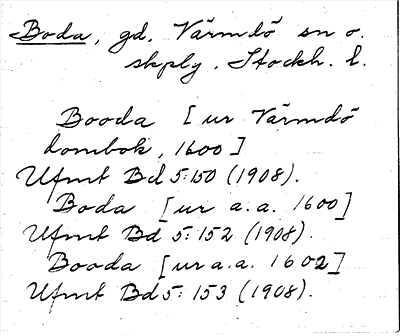 Boda, gd, Värmdö sn o.
skply, Stockh. l.
Booda [ur Värmdö
dombok, 1600]
Ufmt Bd 5:150 (1908).
Boda [ur a.a. 1600]
Ufmt Bd 5:152 (1908).
Booda [ur a.a. 1602]
Ufmt Bd 5:153 (1908).